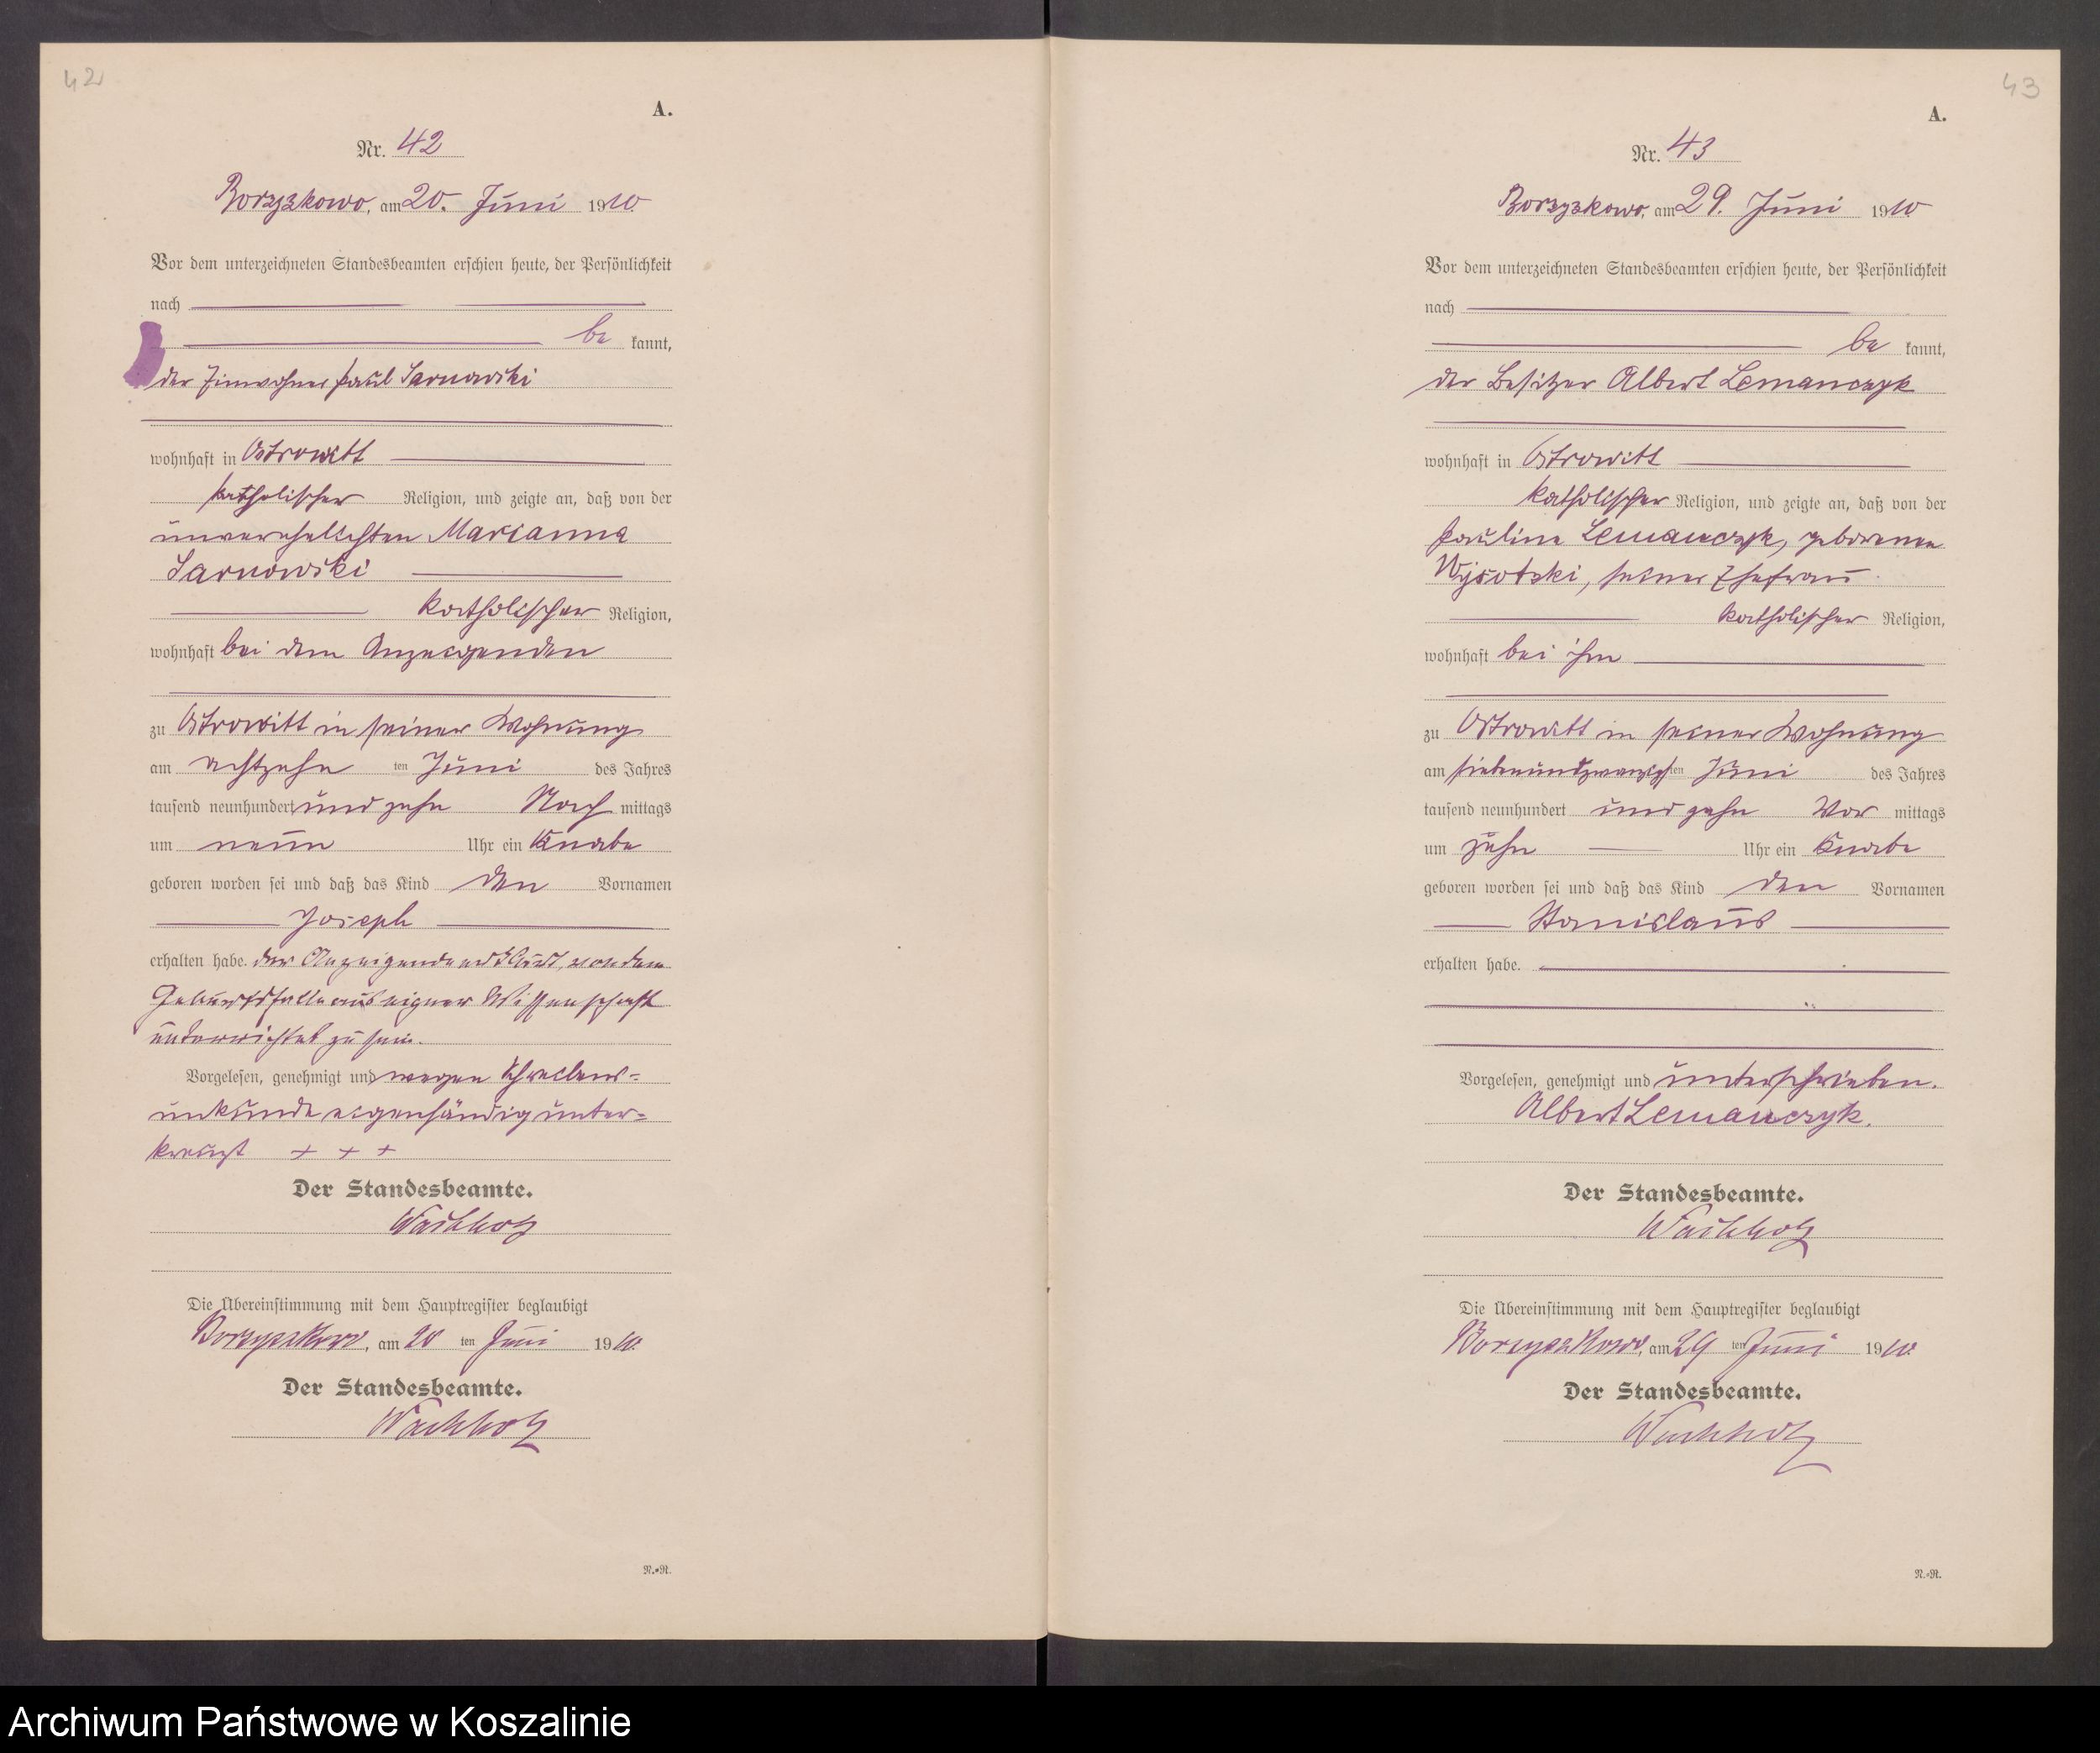 42
A.
Nr. 42
Borzyszkowo, am 20. Juni 1910.
Vor dem unterzeichneten Standesbeamten erschien heute, der Persönlichkeit
nach
be kannt,
der Einwohner Paul Sarnowski
wohnhaft in Ostrowitt
katholischer Religion, und zeigte an, daß von der
unverehelichten Marianna
Sarnowski
katholischer Religion,
wohnhaft bei dem Anzeigenden
zu Ostrowitt in seiner Wohnung
am achtzehn ten Juni des Jahres
tausend neunhundert und zehn Nach mittags
um neun Uhr ein Knabe
geboren worden sei und daß das Kind den Vornamen
Joseph
erhalten habe. der Anzeigende erklärt, von dem
Geburtsfalle aus eigner Wissenschaft
unterrichtet zu sein.
Vorgelesen, genehmigt und wegen Schreibens-
unkunde eigenhändig unter-
kreuzt + + +
Der Standesbeamte.
Wachholz
Die Übereinstimmung mit dem Hauptregister beglaubigt
Borzyszkowo, am 20 ten Juni 1910.
Der Standesbeamte.
Wachholz
N.=R.
43
A.
Nr. 43
Borzyszkowo, am 29. Juni 1910
Vor dem unterzeichneten Standesbeamten erschien heute, der Persönlichkeit
nach
be kannt,
der Besitzer Albert Lemanczyk
wohnhaft in Ostrowitt
katholischer Religion, und zeigte an, daß von der
Pauline Lemanczyk, geborenen
Wysotzki, seiner Ehefrau
katholischer Religion,
wohnhaft bei ihm
zu Ostrowitt in seiner Wohnung
am siebenundzwanzigsten Juni des Jahres
tausend neunhundert und zehn Vor mittags
um zehn Uhr ein Knabe
geboren worden sei und daß das Kind den Vornamen
Stanislaus
erhalten habe.
Vorgelesen, genehmigt und unterschrieben.
Albert Lemanczyk.
Der Standesbeamte.
Wachholz
Die Übereinstimmung mit dem Hauptregister beglaubigt
Borzyszkowo, am 29 ten Juni 1910.
Der Standesbeamte.
Wachholz
N.=R.
Archiwum Państwowe w Koszalinie